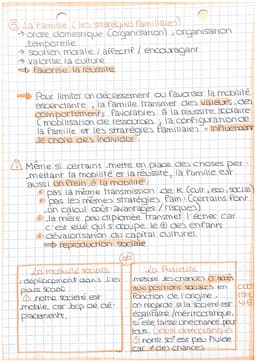 ③ La famille (les stratégies familiales)
→ ordre domestique (organisation), organisation
temporelle
→ soutien morale / affectif / encouragant
→ valorise la culture
⇒ favorise la réussite
⇒ Pour limiter un déclassement ou favoriser la mobilité
ascendante, la famille transmet des valeurs, des
comportements favorables à la réussite scolaire
(mobilisation de ressources), la configuration de
la famille et les stratégies familiales = Influencent
le choix des individus.
⚠ Même si certains mettent en place des choses per-
mettant la mobilité et la réussite, la famille est
aussi un frein à la mobilité :
pas la même transmission de K (cult, eco, social)
pas les mêmes stratégies fam. (certains font
un calcul coût-avantages / risques)
la mère peu diplômée transmet l'échec car
c'est elle qui s'occupe le ⊕ des enfants
dévalorisation du capital culturel
⇒ reproduction sociale
≠
La mobilité sociale
: déplacement dans l'es-
pace social
⚠ notre société est
mobile car bcp de dé-
placements.
La fluidité
: mesure les chances d'accès
aux positions sociales en
fonction de l'origine,
on regarde si la société est
égalitaire / méritocratique,
si elle laisse une chance pour
tous. (idéal démocratique)
⚠ notre so° est peu fluide
car ≠ des chances